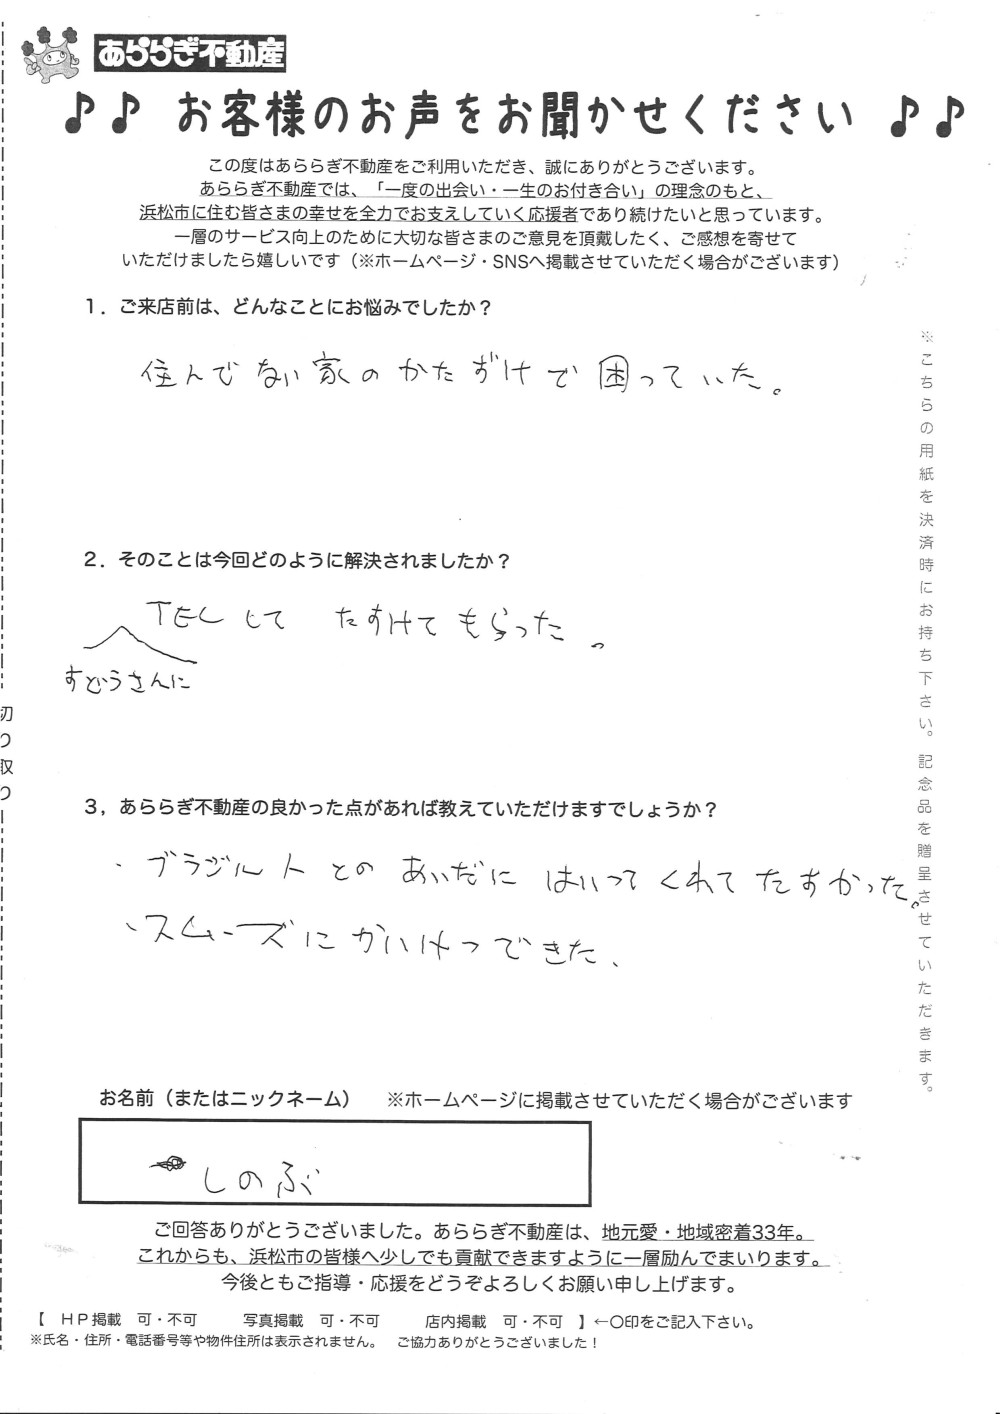 あららぎ不動産
♪♪ お客様のお声をお聞かせください ♪♪
この度はあららぎ不動産をご利用いただき、誠にありがとうございます。
あららぎ不動産では、「一度の出会い・一生のお付き合い」の理念のもと、
浜松市に住む皆さまの幸せを全力でお支えしていく応援者であり続けたいと思っています。
一層のサービス向上のために大切な皆さまのご意見を頂戴したく、ご感想を寄せて
いただけましたら嬉しいです（※ホームページ・SNSへ掲載させていただく場合がございます）
１．ご来店前は、どんなことにお悩みでしたか？
住んでない家のかたずけで困っていた。
２．そのことは今回どのように解決されましたか？
TELして たすけてもらった。
すどうさんに
３，あららぎ不動産の良かった点があれば教えていただけますでしょうか？
・ブラジル人とのあいだにはいってくれてたすかった。
・スムーズにかいけつできた、
※こちらの用紙を決済時にお持ち下さい。記念品を贈呈させていただきます。
切り取り
お名前（またはニックネーム） ※ホームページに掲載させていただく場合がございます
しのぶ
ご回答ありがとうございました。あららぎ不動産は、地元愛・地域密着33年。
これからも、浜松市の皆様へ少しでも貢献できますように一層励んでまいります。
今後ともご指導・応援をどうぞよろしくお願い申し上げます。
【 ＨＰ掲載 可・不可 写真掲載 可・不可 店内掲載 可・不可 】←〇印をご記入下さい。
※氏名・住所・電話番号等や物件住所は表示されません。 ご協力ありがとうございました！